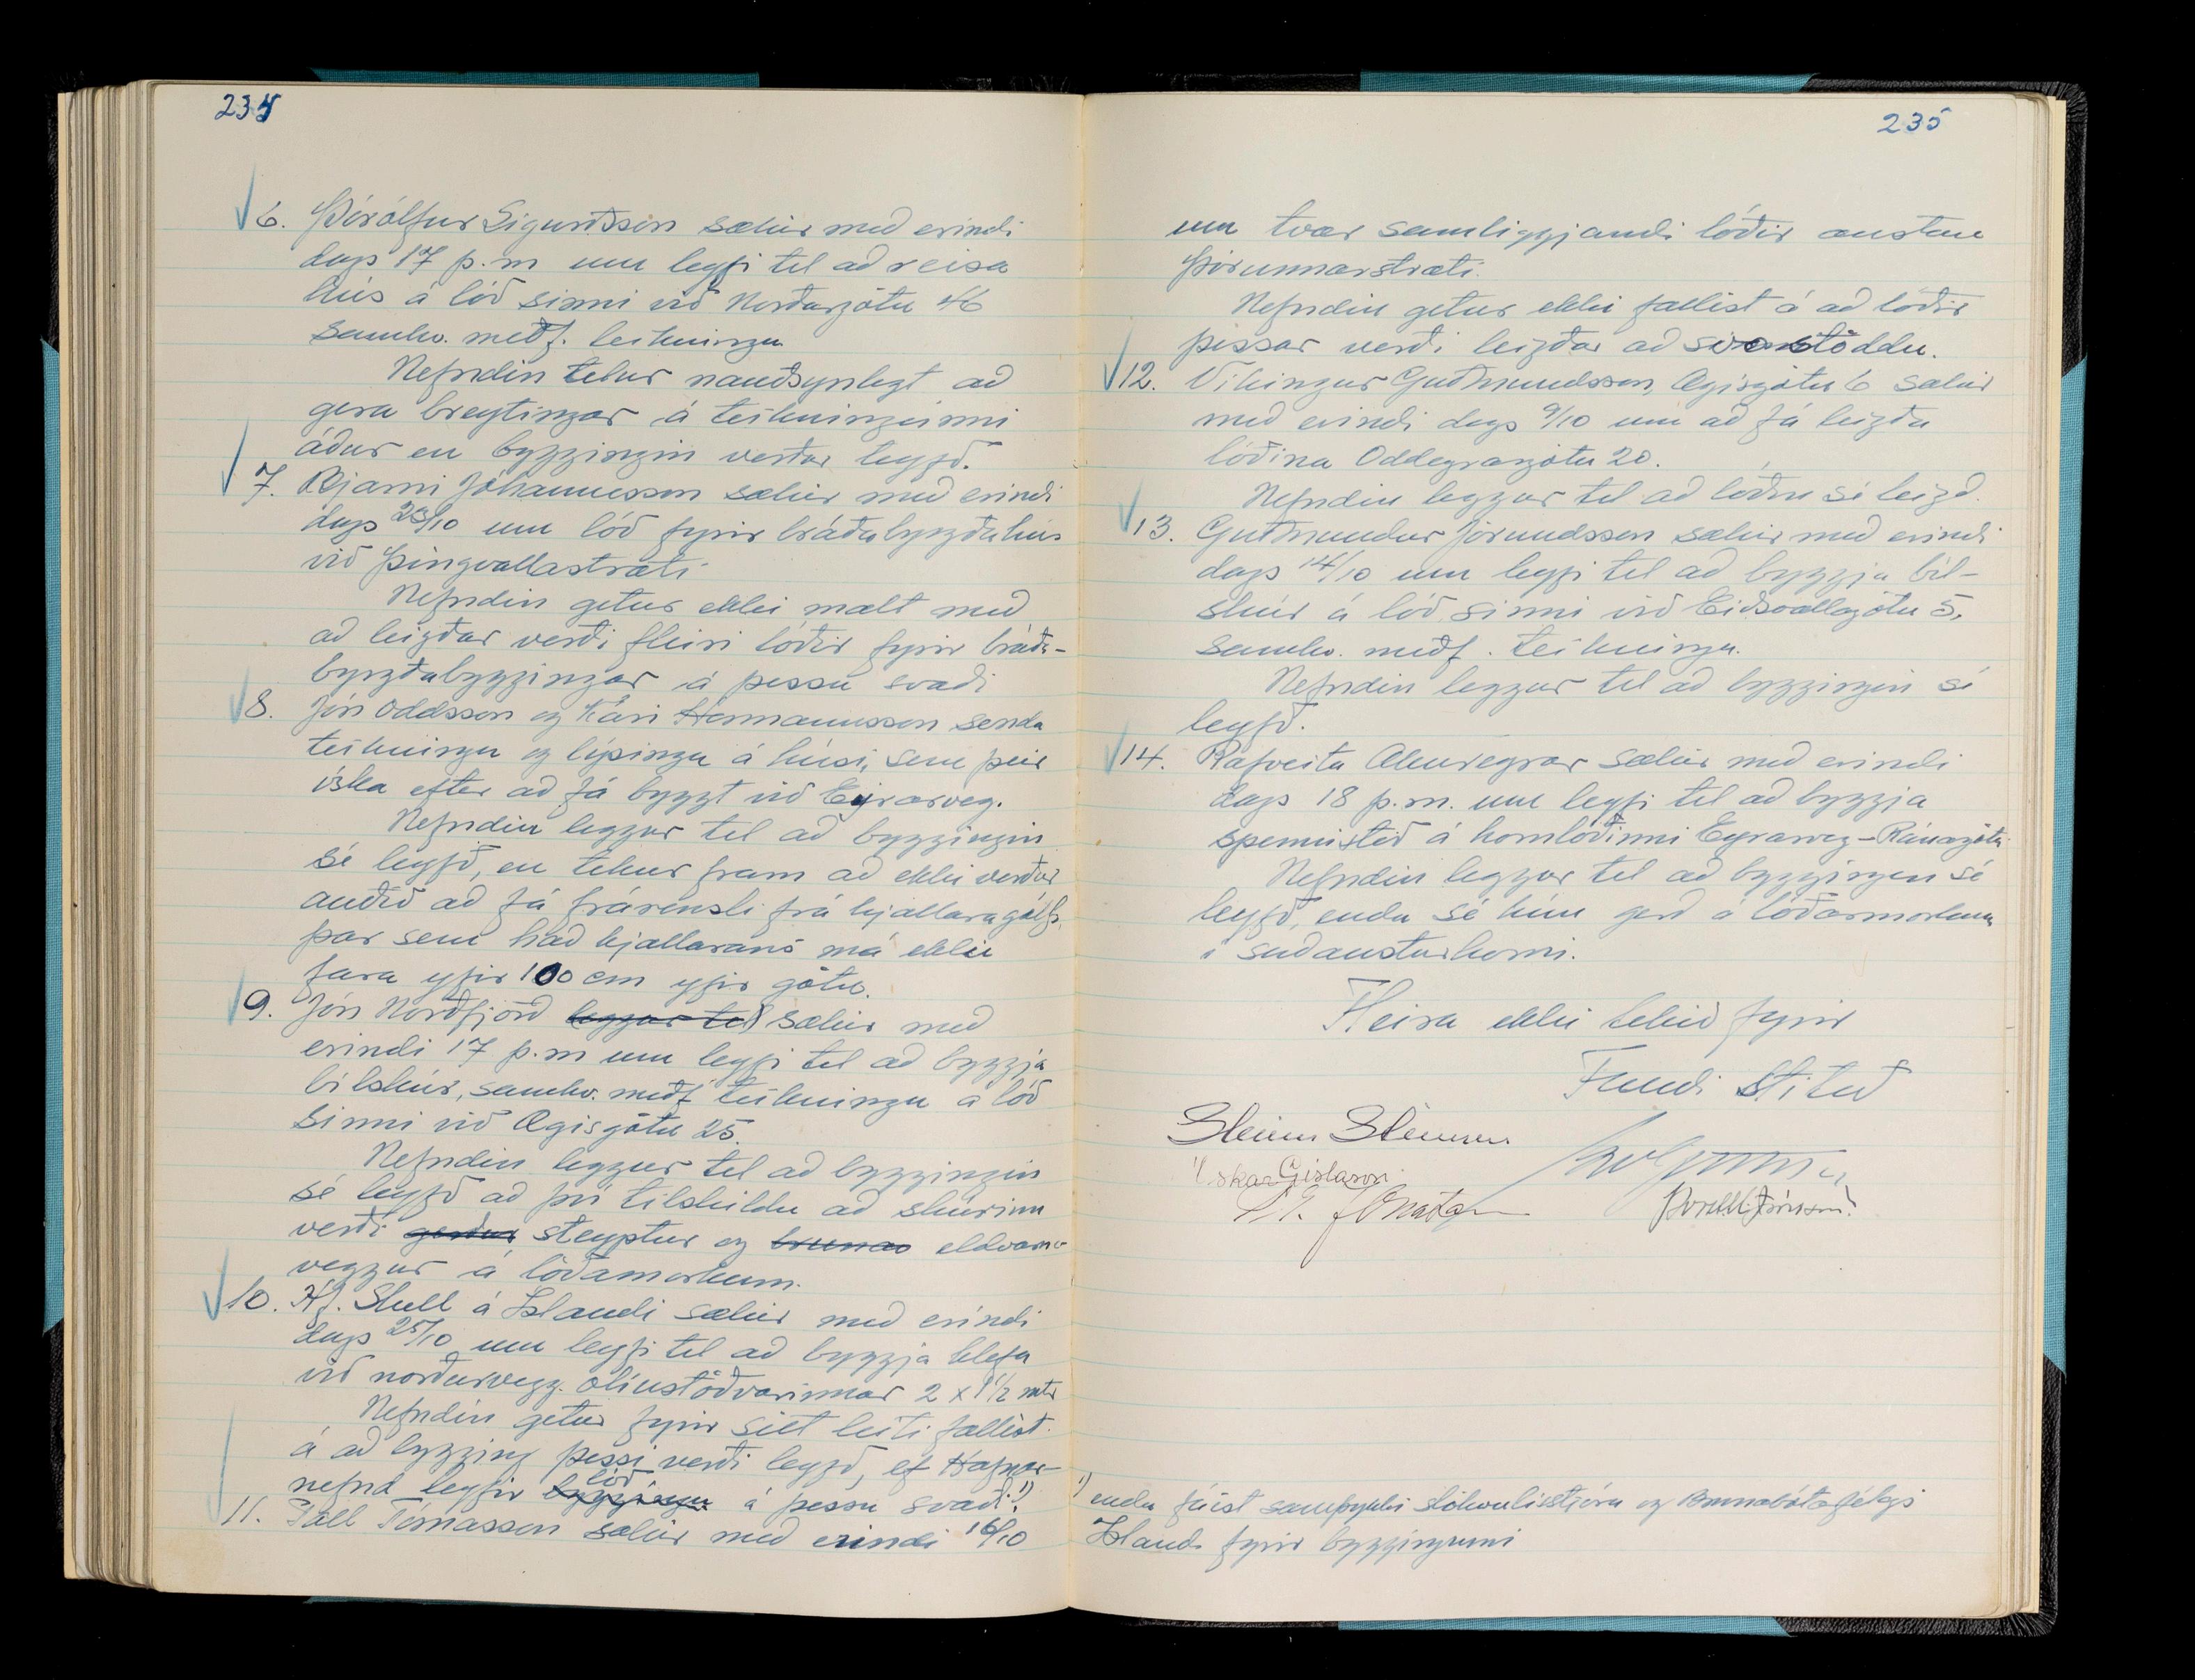 234
6. Þórólfur Sigurðsson sækir með erindi
dags 17 þ.m um leyfi til að reisa
hús á lóð sinni við Norðurgötu 46
samkv. meðf. teikningu
Nefndin telur nauðsynlegt að
gera breytingar á teikningunni
áður en byggingin verður leyfð.
7. Bjarni Jóhannesson sækir með erindi
dags 23/10 um lóð fyrir bráðabyrgðahús
við Þingvallastræti
Nefndin getur ekki mælt með
að leigðar verði fleiri lóðir fyrir bráða-
byrgðabyggingar á þessu svæði
8. Jón Oddsson og Kári Hermannsson senda
teikningu og lýsingu á húsi, sem þeir
óska eftir að fá byggt við Eyrarveg.
Nefndin leggur til að byggingin
sé leyfð, en tekur fram að ekki verður
auðið að fá frárensli frá kjallaragólfi,
þar sem hæð kjallarans má ekki
fara yfir 100 cm yfir götu.
9. Jón Norðfjörð leggur til sækir með
erindi 17 þ.m um leyfi til að byggja
bílskúr, samkv. meðf teikningu á lóð
sinni við Ægisgötu 25.
Nefndin leggur til að byggingin
sé leyfð að því tilskildu að skúrinn
verði gerður steyptur og bruna eldvarna-
veggur á lóðamörkum.
10. H/f. Shell á Íslandi sækir með erindi
dags 25/10 um leyfi til að byggja klefa
við norðurvegg olíustöðvarinnar 2 x 1 1/2 mtr
Nefndin getur fyrir sitt leiti fallist
á að bygging þessi verði leyfð, ef Hafnar-
lóð
nefnd leyfir byggingu á þessu svæði 1)
11. Páll Tómasson sækir með erindi 16/10
235
um tvær samliggjandi lóðir austan
Þórunnarstræti.
Nefndin getur ekki fallist á að lóðir
þessar verði leigðar að svo stöddu.
12. Víkingur Guðmundsson, Ægisgötu 6 sækir
með erindi dags 9/10 um að fá leigða
lóðina Oddeyrargötu 20.
Nefndin leggur til að lóðin sé leigð.
13. Guðmundur Jörundsson sækir með erindi
dags 14/10 um leyfi til að byggja bíl-
skúr á lóð sinni við Eiðsvallagötu 5,
samkv. meðf. teikningu.
Nefndin leggur til að byggingin sé
leyfð.
14. Rafveita Akureyrar sækir með erindi
dags 18 þ.m. um leyfi til að byggja
spennistöð á hornlóðinni Eyrarveg - Ránargötu.
Nefndin leggur til að byggingin sé
leyfð, enda sé hún gerð á lóðarmörkum
í suðausturhorni.
Fleira ekki tekið fyrir
Fundi slitið
Steinn Steinsen
Óskar Gíslason
1) enda fáist samþykki slökkviliðsstjóra og Brunabótafélags
Íslands fyrir byggingunni